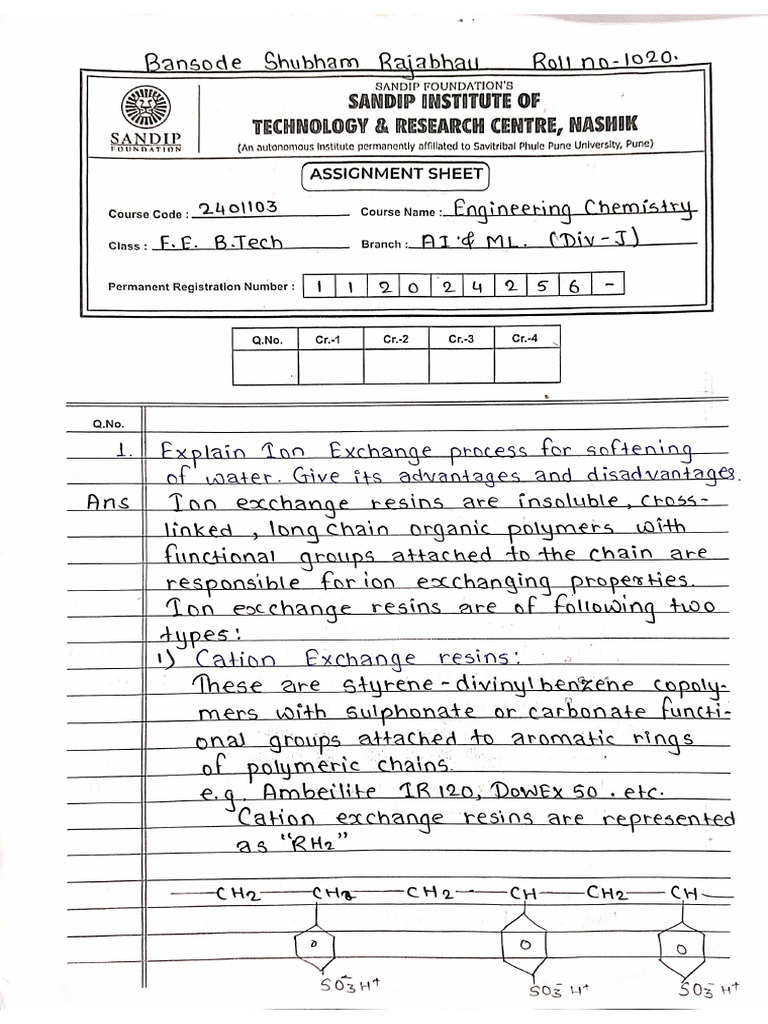 Bansode Shubham Rajabhau Roll no-1020.
SANDIP FOUNDATION'S
SANDIP INSTITUTE OF
TECHNOLOGY & RESEARCH CENTRE, NASHIK
(An autonomous Institute permanently affiliated to Savitribai Phule Pune University, Pune)
SANDIP
FOUNDATION
ASSIGNMENT SHEET
Course Code : 2401103 Course Name : Engineering Chemistry
Class : F.E. B.Tech Branch : AI & ML. (Div-J)
Permanent Registration Number : 1 1 2 0 2 4 2 5 6 -
Q.No. Cr.-1 Cr.-2 Cr.-3 Cr.-4
Q.No.
1. Explain Ion Exchange process for softening
of water. Give its advantages and disadvantages.
Ans Ion exchange resins are insoluble, cross-
linked, long chain organic polymers with
functional groups attached to the chain are
responsible for ion exchanging properties.
Ion exchange resins are of following two
types:
1) Cation Exchange resins:
These are styrene-divinyl benzene copoly-
mers with sulphonate or carbonate functi-
onal groups attached to aromatic rings
of polymeric chains.
e.g. Ambeilite IR 120, DowEx 50. etc.
Cation exchange resins are represented
as "RH2"
CH2 CH2 CH2 CH CH2 CH
SO3- H+ SO3- H+ SO3- H+